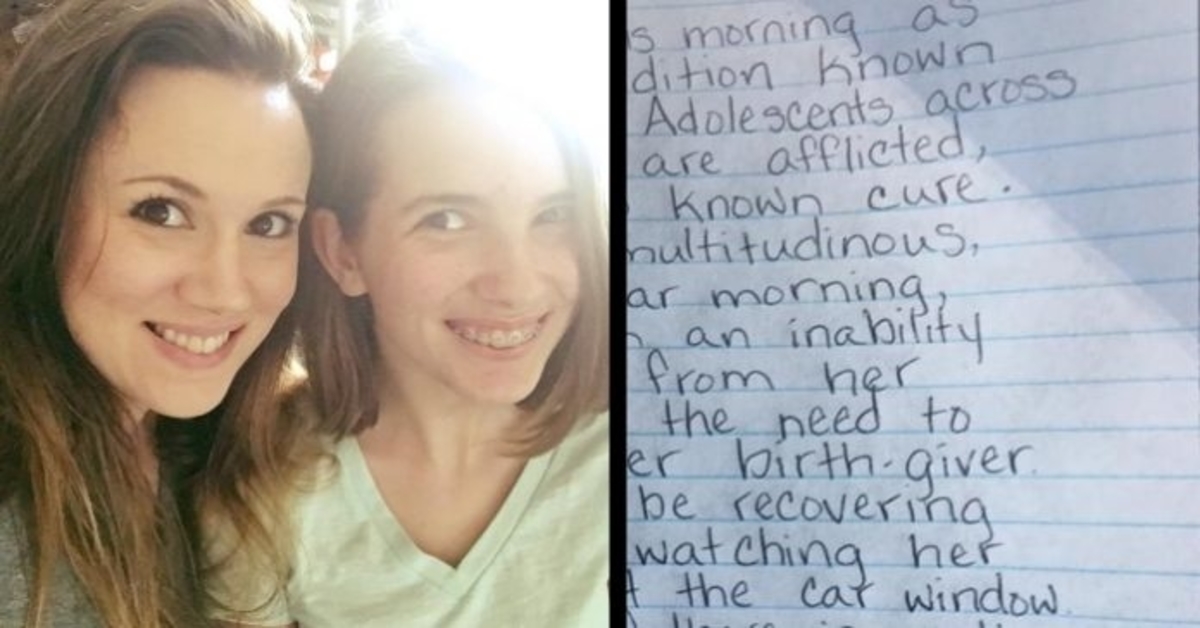 s morning as
dition known
Adolescents across
are afflicted,
known cure.
multitudinous,
ar morning,
an inability
from her
the need to
er birth-giver
be recovering
watching her
the car window